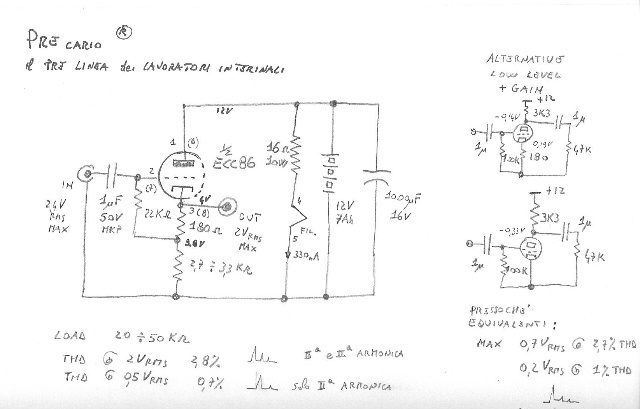 PRE CARIO ®
il PRE LINEA dei LAVORATORI INTERINALI
12V
1 (6)
1/2
ECC86
2
(7)
IN
2,4V
RMS
MAX
1µF
50V
MKP
22KΩ
4V
3(8)
180Ω
3,6V
OUT
2VRMS
MAX
2,7 ÷ 3,3 KΩ
16Ω
10W
4
FIL.
5
330mA
12V
7Ah
1000µF
16V
LOAD 20 ÷ 50 KΩ
THD @ 2VRMS 2,8% IIª e IIIª ARMONICA
THD @ 0,5 VRMS 0,7% solo IIª ARMONICA
ALTERNATIVE
LOW LEVEL
+ GAIN
+12
3K3
1µ
-0,4V
1µ
0,19V
180
47K
+12
3K3
1µ
1µ
100K
47K
PRESSOCHE'
EQUIVALENTI:
MAX 0,7 VRMS @ 2,7% THD
0,2 VRMS @ 1% THD